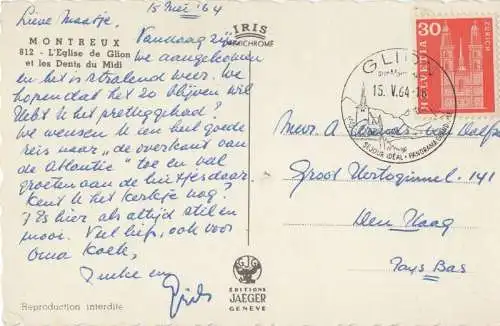 15 Mei '64
Lieve Maatje,
IRIS
MONTREUX
812 - L'Eglise de Glion
et les Dents du Midi
Vandaag zijn
we aangekomen
en het is stralend weer. We
hopen dat het zo blijven wil
Hebt U het prettig gehad?
We wensen U een heel goede
reis naar "de overkant van
de Atlantic" toe en veel
groeten aan de hartjes daar.
Kent U het kerkje nog?
't Is hier als altijd stil en
mooi. Veel liefs, ook voor
Oma Koek,
Reproduction interdite
EDITIONS
JAEGER
GENEVE
GLION
15. V. 64 - 18
SÉJOUR IDÉAL - PANORAMA
HELVETIA
30
ZÜRICH
Mevr. A.
Groot Hertoginnel. 141
Den Haag
Pays Bas